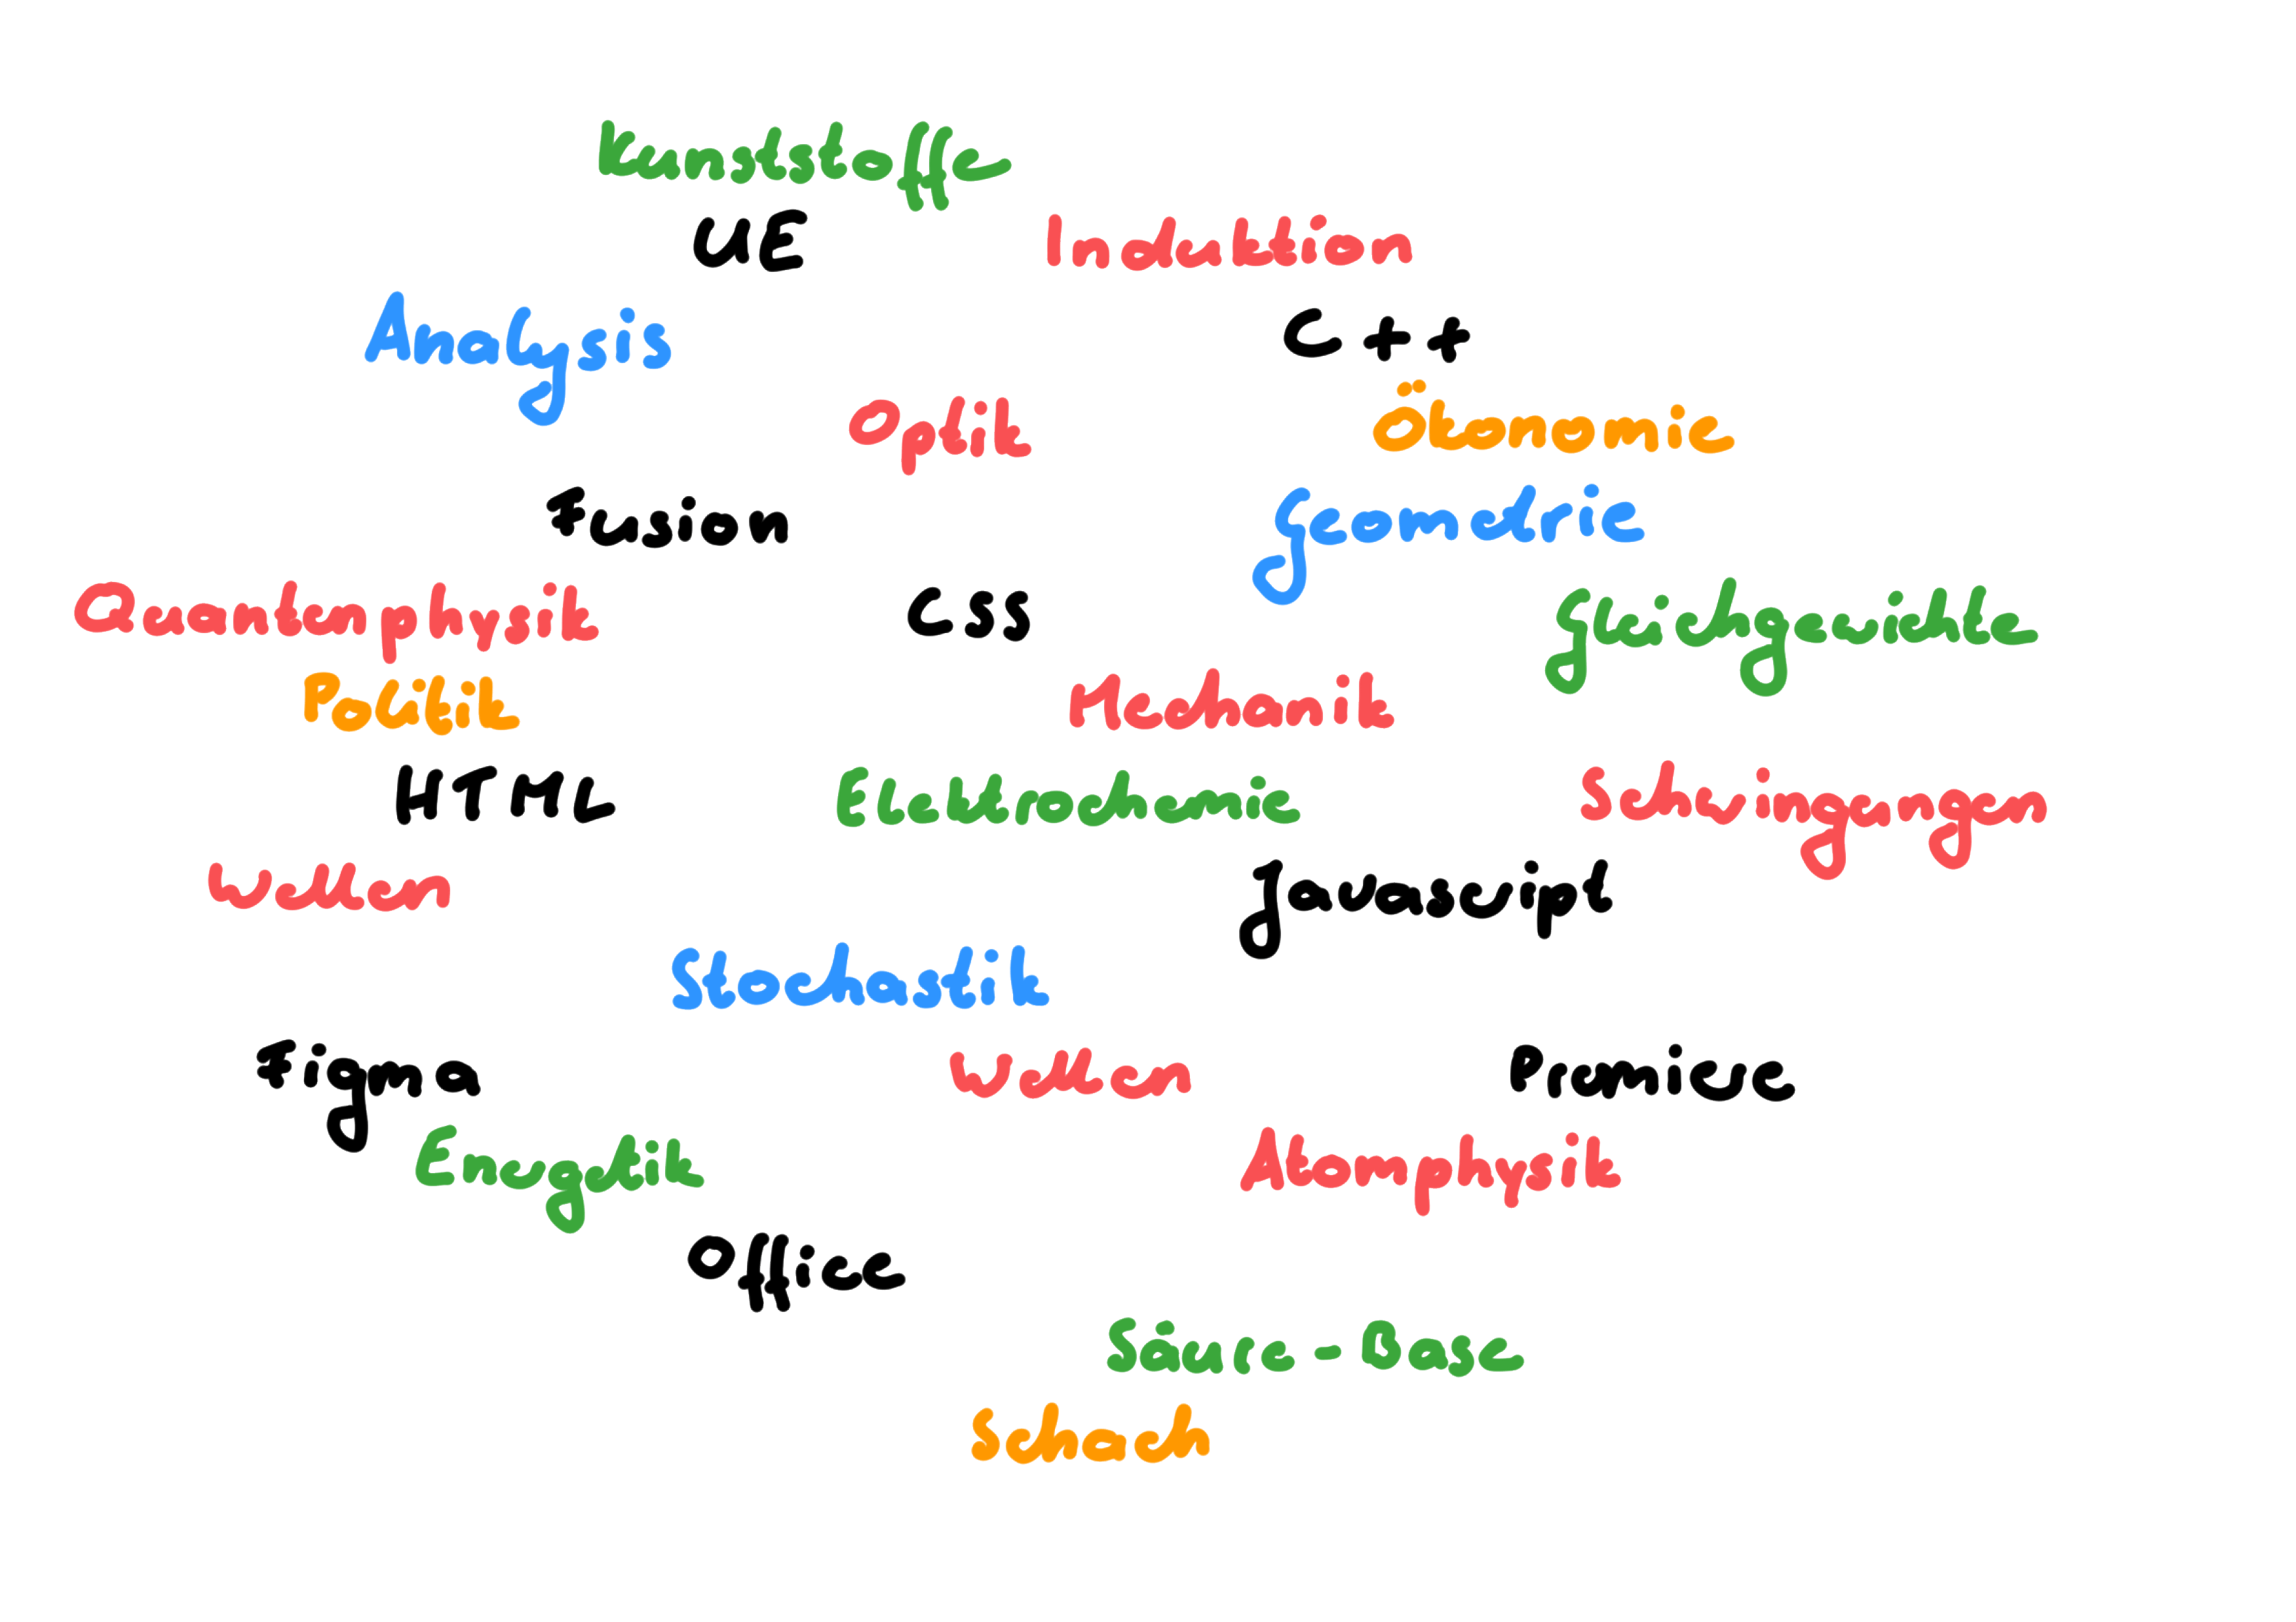 Kunststoffe
UE Induktion
Analysis C++
Optik Ökonomie
Fusion Geometrie
Quantenphysik CSS Gleichgewichte
Politik Mechanik
HTML Elektrochemie Schwingungen
Wellen Javascript
Stochastik
Figma Wellen Premiere
Energetik Atomphysik
Office
Säure-Base
Schach